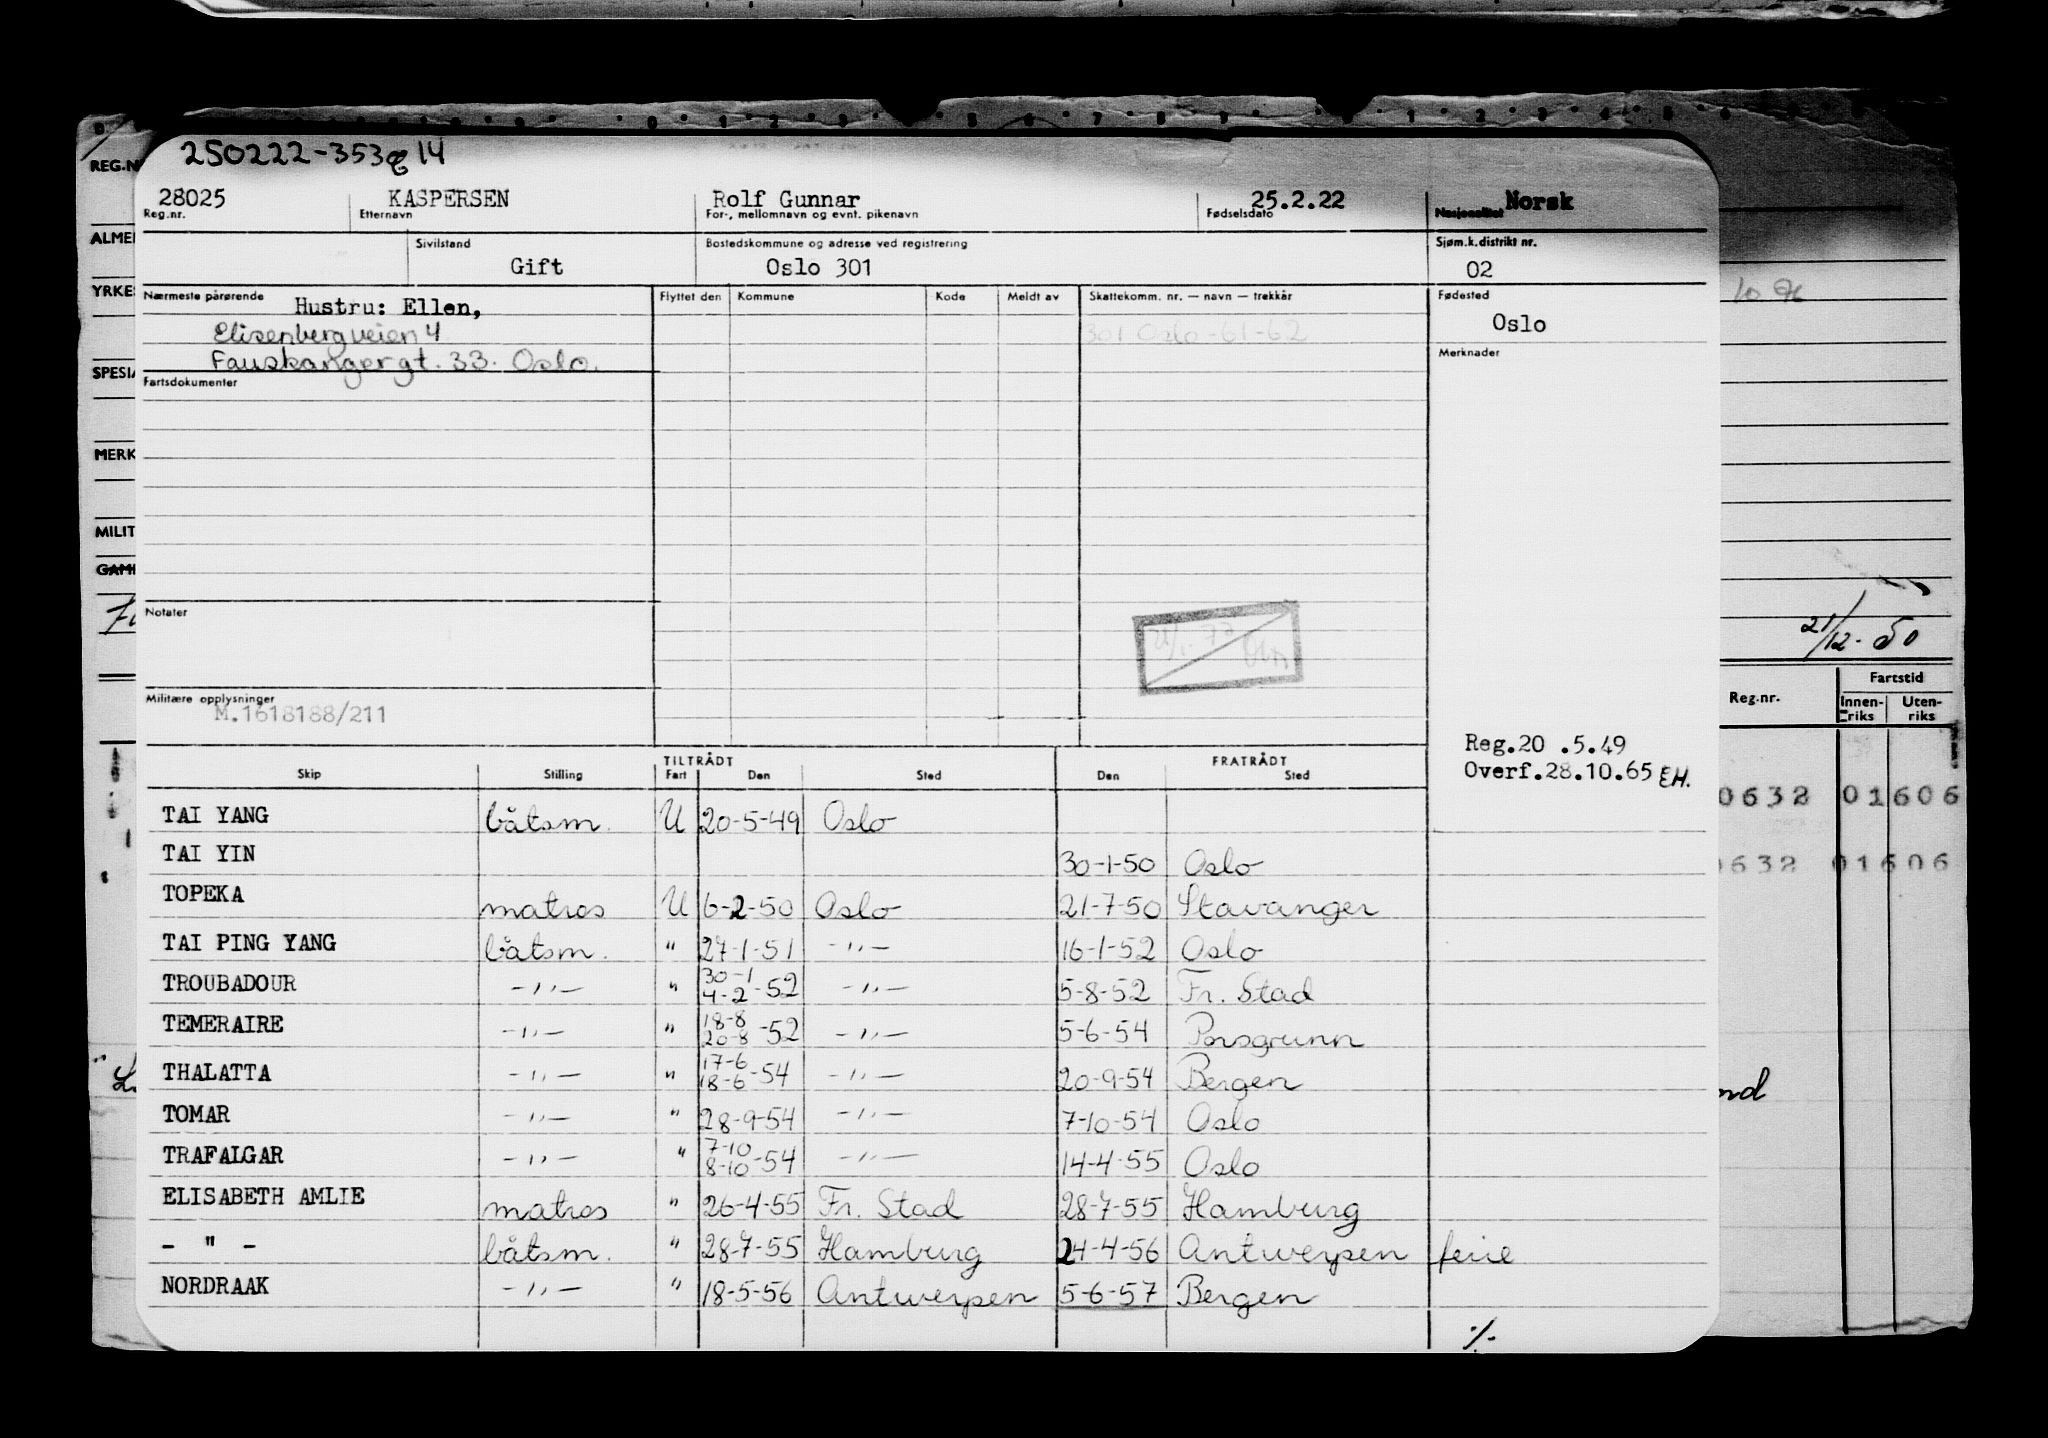 250222-353 14
28025 KASPERSEN Rolf Gunnar 25.2.22 Norsk
Reg.nr. Etternavn For-, mellomnavn og evnt. pikenavn Fødselsdato Nasjonalitet
Sivilstand Bostedskommune og adresse ved registrering Sjøm.k.distrikt nr.
Gift Oslo 301 02
Nærmeste pårørende Hustru: Ellen, Flyttet den Kommune Kode Meldt av Skattekomm. nr. — navn — trekkår Fødested
Elisenbergveien 4 301 Oslo -61-62 Oslo
Fauskangergt. 33. Oslo. Merknader
Fartsdokumenter
Notater
Militære opplysninger
M.1618188/211
Reg.20 .5.49
Overf.28.10.65 EH.
TILTRÅDT FRATRÅDT
Skip Stilling Fart Den Sted Den Sted
TAI YANG båtsm. U 20-5-49 Oslo
TAI YIN 30-1-50 Oslo
TOPEKA matros U 6-2-50 Oslo 21-7-50 Stavanger
TAI PING YANG båtsm. " 27-1-51 -"- 16-1-52 Oslo
TROUBADOUR -"- " 30-1 4-2-52 -"- 5-8-52 Fr. Stad
TEMERAIRE -"- " 18-8 20-8-52 -"- 5-6-54 Porsgrunn
THALATTA -"- " 17-6 18-6-54 -"- 20-9-54 Bergen
TOMAR -"- " 28-9-54 -"- 7-10-54 Oslo
TRAFALGAR -"- " 7-10 8-10-54 -"- 14-4-55 Oslo
ELISABETH AMLIE matros " 26-4-55 Fr. Stad 28-7-55 Hamburg
- " - båtsm. " 28-7-55 Hamburg 24-4-56 Antwerpen ferie
NORDRAAK -"- " 18-5-56 Antwerpen 5-6-57 Bergen
·/·
REG.N
ALME
YRKE
SPESI
MERK
MILIT
GAML
21/12-50
Fartstid
Reg.nr. Innenriks Utenriks
0632 01606
0632 01606